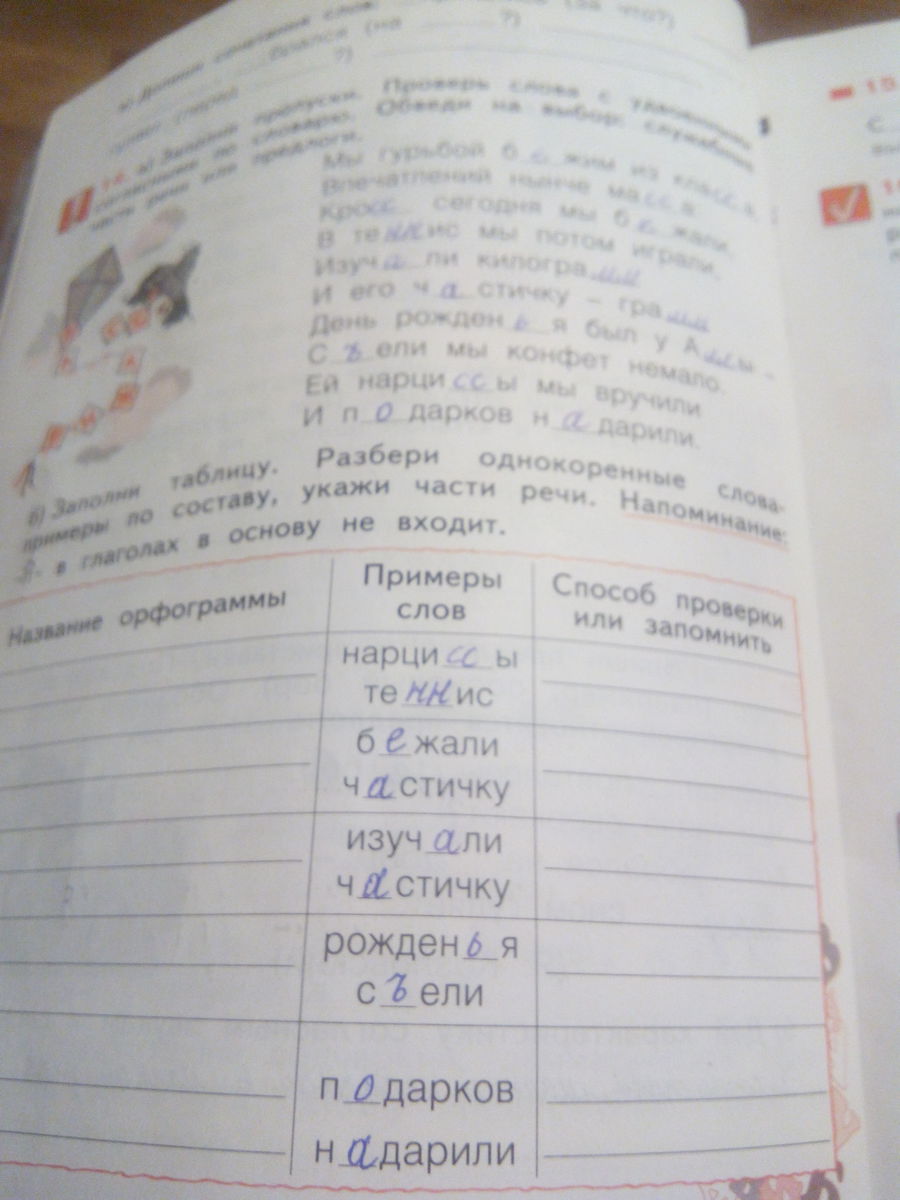 (за что?)
а) Допиши сочетания слов:
брался (на ?)
?)
14. а) Заполни пропуски. Проверь слова с удвоенными
согласными по словарю. Обведи на выбор: служебные
часть речи или предлоги.
Мы гурьбой бежим из класса,
Впечатлений нынче масса.
Кросс сегодня мы бежали,
В теннис мы потом играли,
Изучали килограмм
И его частичку – грамм
День рожденья был у Аллы –
Съели мы конфет немало.
Ей нарциссы мы вручили
И подарков надарили.
б) Заполни таблицу. Разбери однокоренные слова-
примеры по составу, укажи части речи. Напоминание:
в глаголах в основу не входит.
Название орфограммы
Примеры слов
Способ проверки или запомнить
нарциссы
теннис
бежали
частичку
изучали
частичку
рожденья
съели
подарков
надарили
15.
С